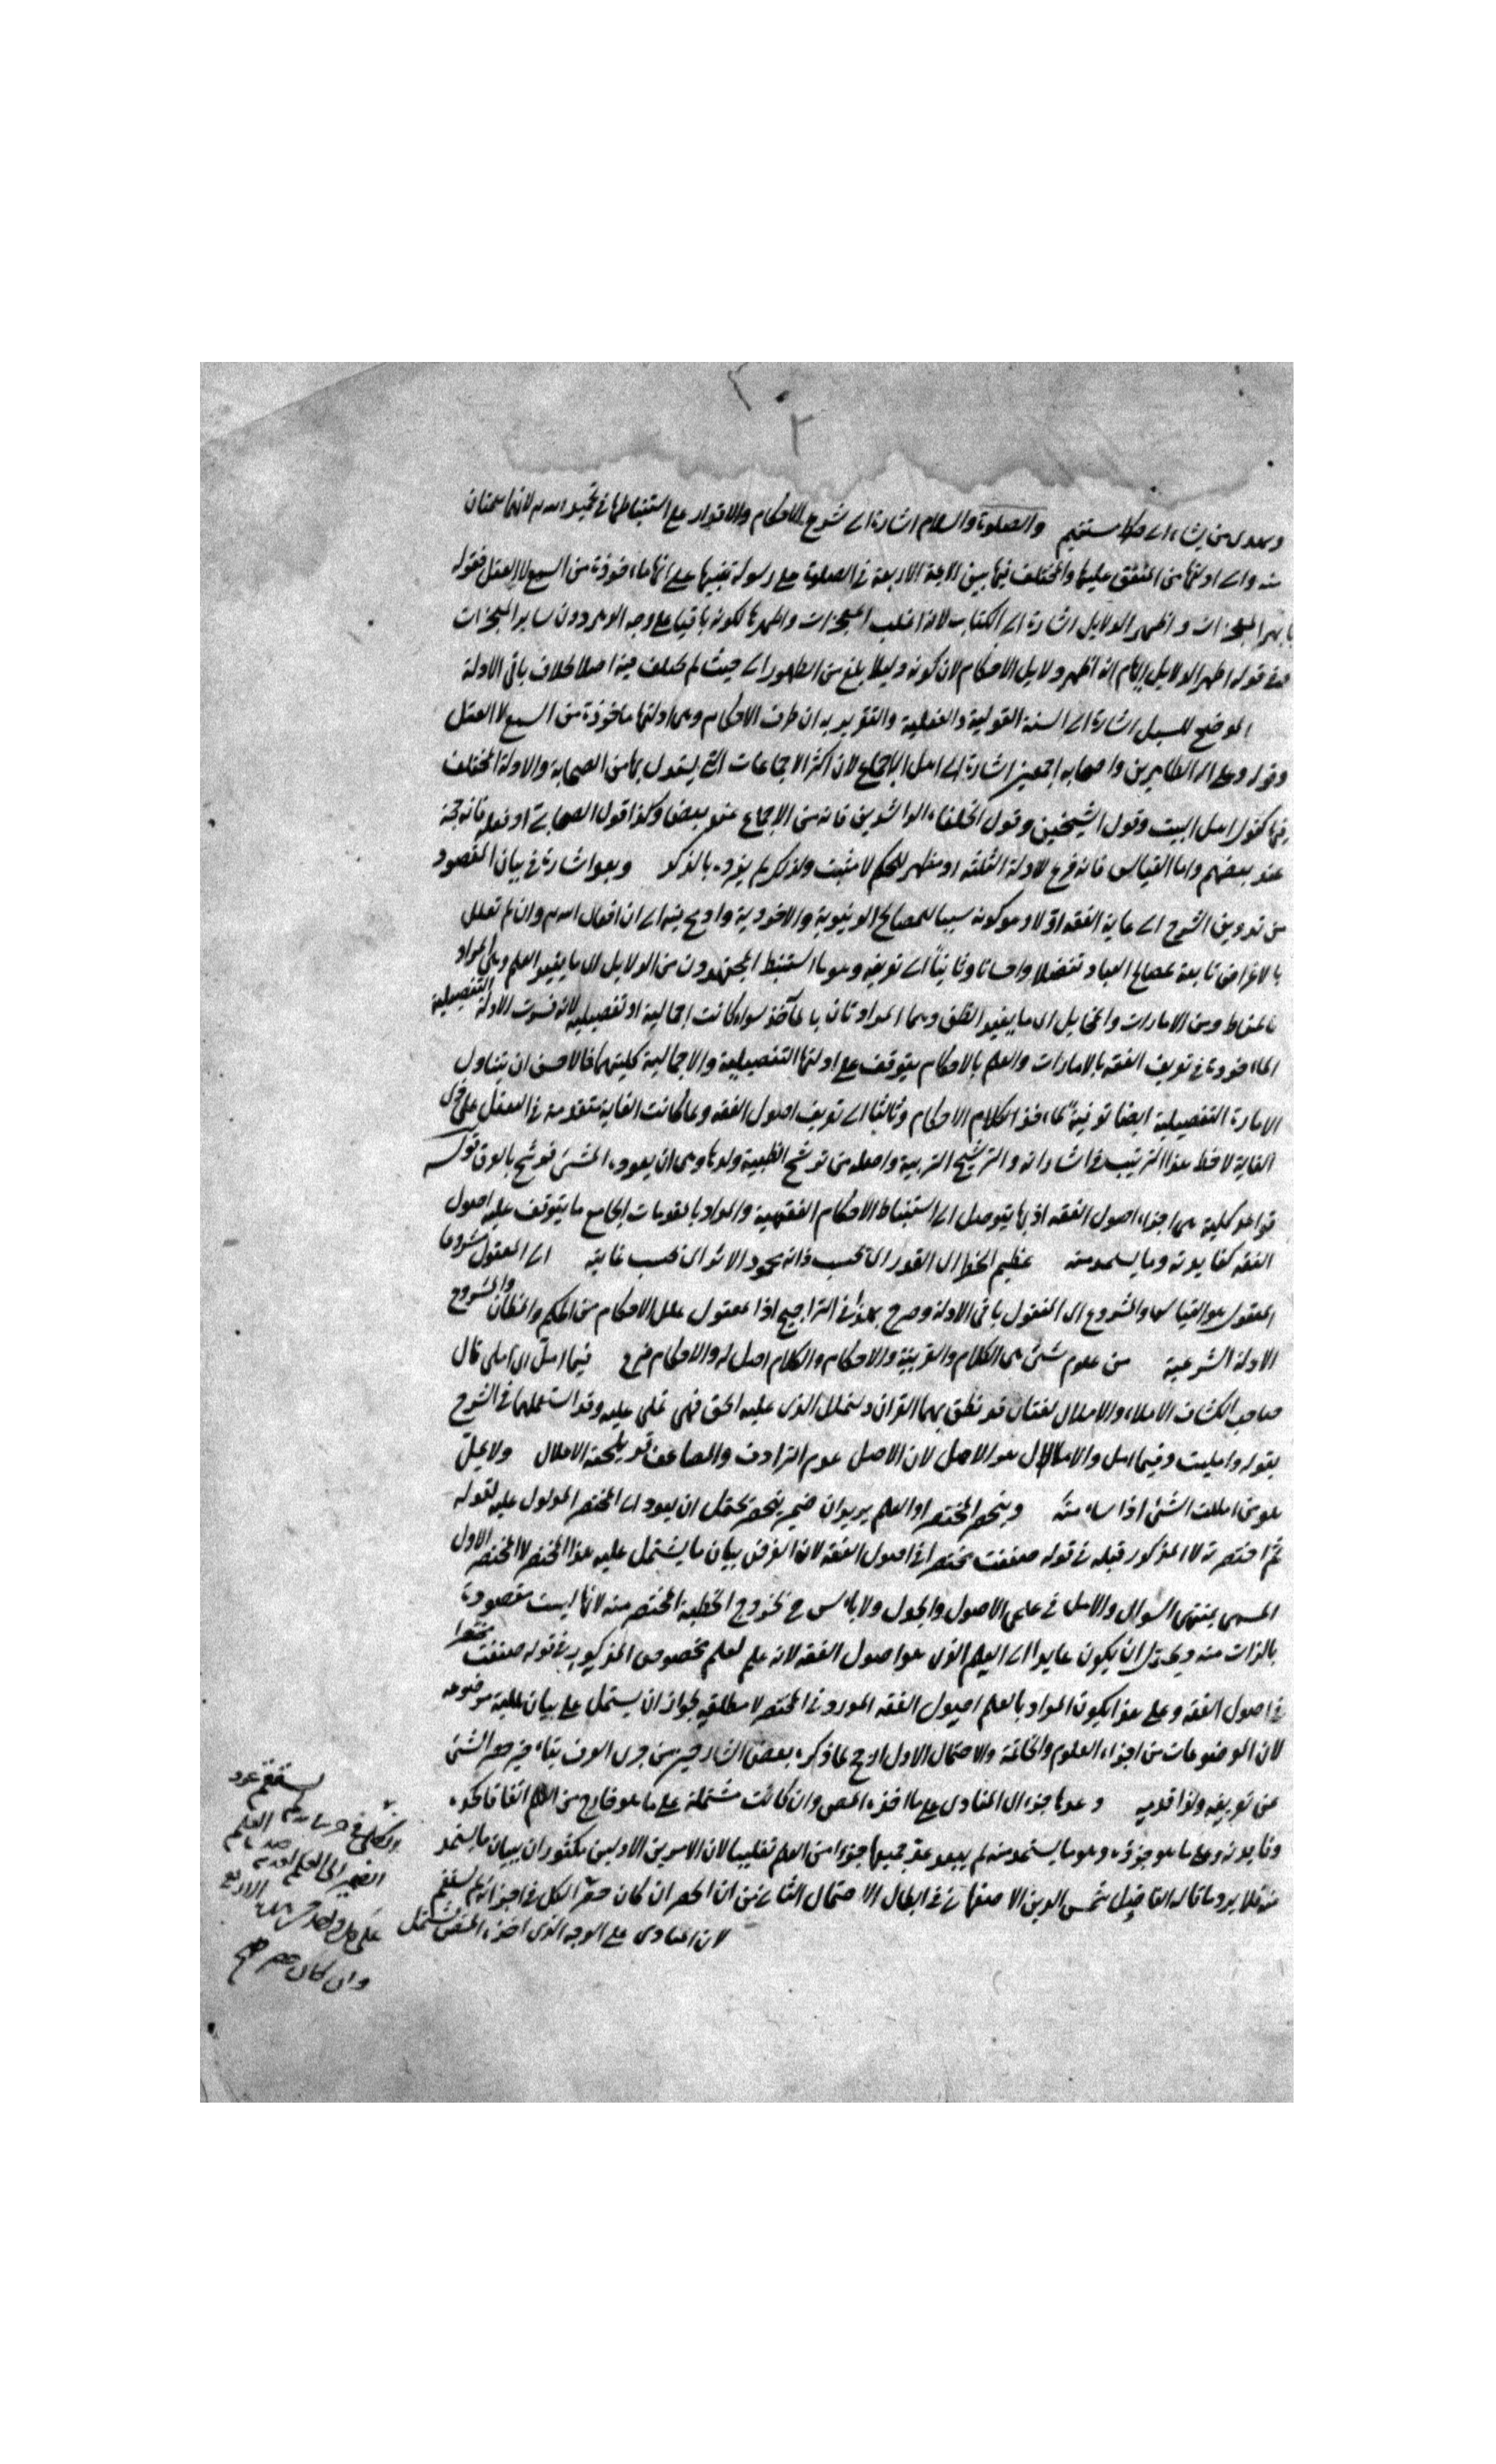 ٢
ويهدي من يشاء الى صراط مستقيم والصلوة والسلام اشارة الى شرع الاحكام والاقدار على استنباطها في تحميد الله لانهما
منه والى ادلتها من المتفق عليها والمختلف فيها بين الائمة الاربعة في الصلوة على رسوله تنبيها على انها ماخوذة من السمع لا العقل فقوله
بابهر المعجزات واظهر الدلايل اشارة الى الكتاب لانه اغلب المعجزات واظهرها لكونه باقيا على وجه الدهر دون ساير المعجزات
قوله اظهر الدلايل انه اظهر دلايل الاحكام لان كونه دليلا بلغ من الظهور الى حيث لم يختلف فيه اصلا بخلاف باقي الادلة
الموضح للسبل اشارة الى السنة القولية والفعلية والتقريرية ان طرق الاحكام وهي ادلتها ماخوذة من السمع لا العقل
وقوله وعلى اله الطاهرين واصحابه اجمعين اشارة الى اهل الاجماع لان اكثر الاجماعات التي يستدل بها من الصحابة والادلة المختلف
فيها كقول اهل البيت وقول الشيخين وقول الخلفاء الراشدين فانه من الاجماع عند بعض وكذا قول الصحابة او فعله فانه حجة
عند بعضهم واما القياس فانه فرع لادلة الثلثة او مظهر للحكم لا مثبت ولذلك لم يفرده بالذكر وبعد اشارة في بيان المقصود
من تدوين الشرح الى غاية الفقه اولا وهو كونه سببا للمصالح الدنيوية والاخروية وادرج فيه الى ان افعال الله وان لم تعلل
بالاغراض تابعة لمصالح العباد تفضلا واحسانا وثانيا الى تعريفه وهو ما استنبط المجتهدون من الدلايل اى ما يفيد العلم وهي المراد
بالمناط ومن الامارات والمخايل اى ما يفيد الظن وهما المرادتان بالمآخذ سواء كانت اجمالية او تفصيلية لانه فسرت الادلة التفصيلية
الماخوذة في تعريف الفقه بالامارات والعلم بالاحكام يتوقف على ادلتها التفصيلية والاجمالية كلتيهما فالاحسن ان يتناول
الامارة التفصيلية ايضا توفية لماخذ الكلام الاحكام وثالثا الى تعريف اصول الفقه ولما كانت الغاية متقدمة في العقل على ذي
الغاية لاحظ هذا الترتيب في اشاراته والترشيح التربية واصله من ترشح الظبية ولدها وهى ان يعوده المشى فترشح بالعرق قوله
قواعد كلية هى اجزاء اصول الفقه اذ بها يتوصل الى استنباط الاحكام الفقهية والمراد بالمقدمات الجامع ما يتوقف عليه اصول
الفقه كفايدته وما يستمد منه عظيم الخطر اى القدر اى بحسب ذاته محمود الاثر اى بحسب غايته اى المعقول مشروعا
المعقول هو القياس والمشروع اى المنقول باقى الادلة وصرح بهذا في التراجيح اذا معقول علل الاحكام من الحكم والمظان والمشروع
الادلة الشرعية من علوم شتى هى الكلام والعربية والاحكام والكلام اصل له والاحكام فرع فيما امل اى املى قال
صاحب الكشاف الاملاء والاملال لغتان قد نطق بهما القران وليملل الذى عليه الحق فهى تملى عليه وقد استعملهما في الشرح
بقوله وامليت وفيما امل والاملال هو الاصل لان الاصل عدم الترادف والمضاعف قد يلحقه الاعلال ولا يمل
هو من امللت الشئ اذا سئمته وينحصر المختصر او العلم يريد ان ضمير ينحصر يحتمل ان يعود الى المختصر المدلول عليه بقوله
ثم اختصرته لا المذكور قبله في قوله صنفت مختصرا في اصول الفقه لان الغرض بيان ما يشتمل عليه هذا المختصر لا المختصر الاول
المسمى بمنتهى السوال والامل في علمى الاصول والجدل ولا باس ح بخروج الخطبة المختصر منه لانها ليست مقصودة
بالذات منه ويحتمل ان يكون عايدا الى العلم الذى هو اصول الفقه لانه علم لعلم مخصوص المذكور في قوله صنفت مختصرا
في اصول الفقه وعلى هذا يكون المراد بالعلم اصول الفقه المورد في المختصر لا مطلقه لجواز ان يشتمل على بيان موضوعه
لان الموضوعات من اجزاء العلوم والخاتمة والاحتمال الاول ارجح لما ذكره بعض الشارحين من جرى العرف حصر الشئ
عن تعريفه ولذا قدمه وعدها جزءا اى المبادى على ما اخذه المص وان كانت مشتملة على ما هو خارج من العلم اتفاقا كحده
وفايدته وعلى ما هو جزؤه وهو ما يستمد منه لم يبعد عد جميعها جزءا من العلم تغليبا لان الامرين الاولين ان بيان ما يستمد
منه فلا يرد ما قاله الفاضل شمس الدين الاصفهانى في ابطال الاحتمال الثانى من ان الحصر ان كان حصر الكل في اجزائه لم يستقم
لان المبادى على الوجه الذى اخذه المصنف يشتمل
يستقم عود
الكلى في
العلم
الضمير الى العلم لعدم صدق
على كل واحد من الاربعة
وان كان حصر